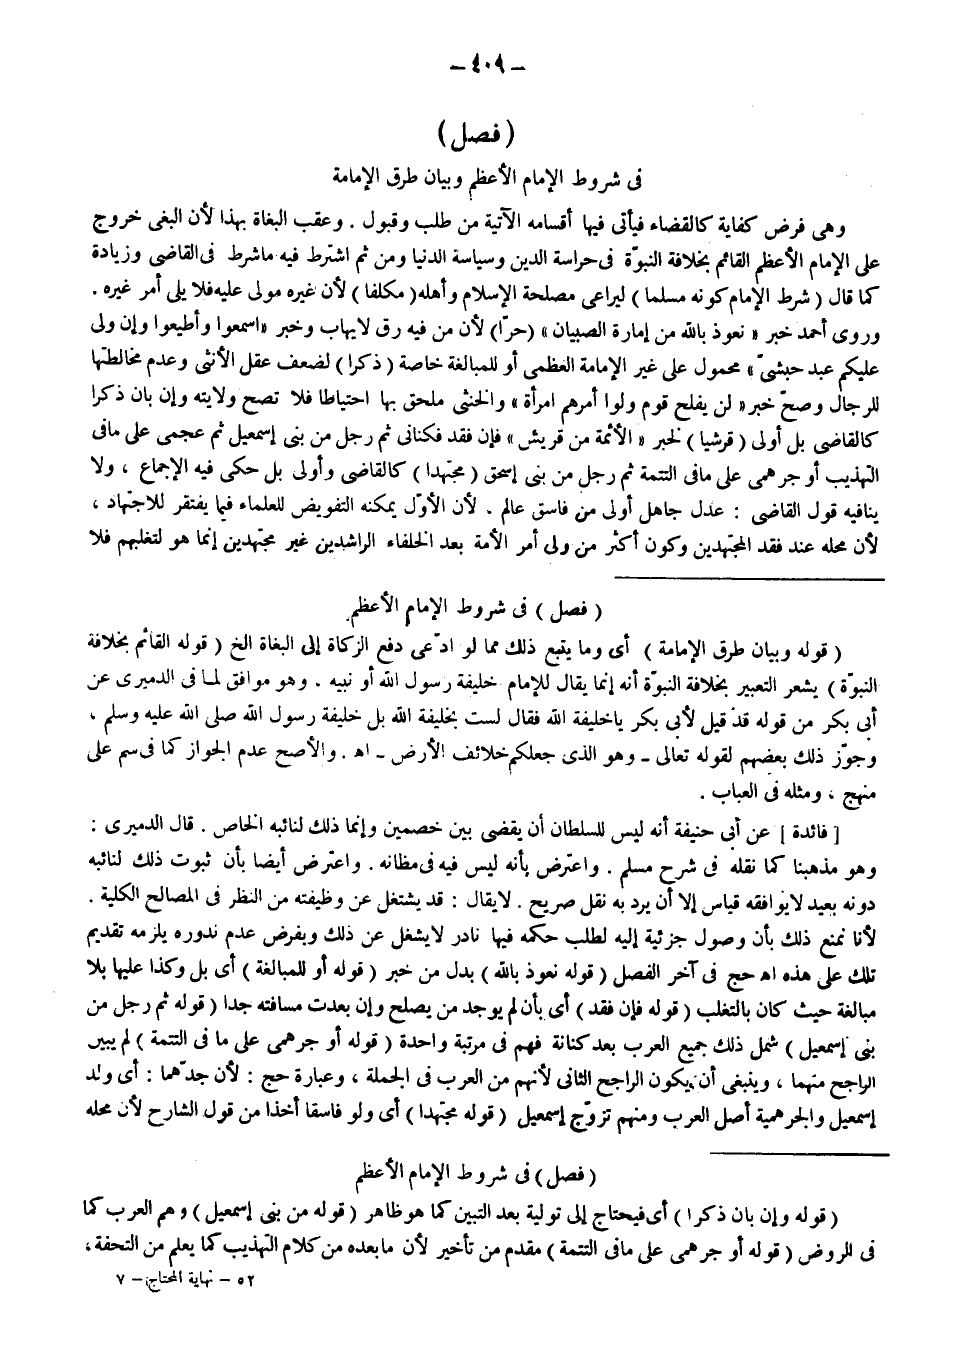 - ٤٠٩ -
( فصل )
فى شروط الإمام الأعظم وبيان طرق الإمامة
وهى فرض كفاية كالقضاء فيأتى فيها أقسامه الآتية من طلب وقبول . وعقب البغاة بهذا لأن البغى خروج
على الإمام الأعظم القائم بخلافة النبوّة فى حراسة الدين وسياسة الدنيا ومن ثم اشترط فيه ماشرط فى القاضى وزيادة
كما قال ( شرط الإمام كونه مسلما ) ليراعى مصلحة الإسلام وأهله ( مكلفا ) لأن غيره مولى عليه فلا يلى أمر غيره .
وروى أحمد خبر « نعوذ بالله من إمارة الصبيان » (حرّا) لأن من فيه رق لايهاب وخبر «اسمعوا وأطيعوا وإن ولى
عليكم عبد حبشىّ » محمول على غير الإمامة العظمى أو للمبالغة خاصة ( ذكرا ) لضعف عقل الأنثى وعدم مخالطتها
للرجال وصحّ خبر « لن يفلح قوم ولوا أمرهم امرأة » والخنثى ملحق بها احتياطا فلا تصح ولايته وإن بان ذكرا
كالقاضى بل أولى ( قرشيا ) لخبر « الأئمة من قريش » فإن فقد فكنانى ثم رجل من بنى إسمعيل ثم عجمى على مافى
التهذيب أو جرهمى على مافى التتمة ثم رجل من بنى إسحق ( مجتهدا ) كالقاضى وأولى بل حكى فيه الإجماع ، ولا
ينافيه قول القاضى : عدل جاهل أولى من فاسق عالم . لأن الأوّل يمكنه التفويض للعلماء فيما يفتقر للاجتهاد ،
لأن محله عند فقد المجتهدين وكون أكثر من ولى أمر الأمة بعد الخلفاء الراشدين غير مجتهدين إنما هو لتغلبهم فلا
( فصل ) فى شروط الإمام الأعظم
( قوله وبيان طرق الإمامة ) أى وما يتبع ذلك مما لو ادّعى دفع الزكاة إلى البغاة الخ ( قوله القائم بخلافة
النبوّة ) يشعر التعبير بخلافة النبوّة أنه إنما يقال للإمام خليفة رسول الله أو نبيه . وهو موافق لما فى الدميرى عن
أبى بكر من قوله قد قيل لأبى بكر ياخليفة الله فقال لست بخليفة الله بل خليفة رسول الله صلى الله عليه وسلم ،
وجوّز ذلك بعضهم لقوله تعالى ـ وهو الذى جعلكم خلائف الأرض ـ اه . والأصح عدم الجواز كما فى سم على
منهج ، ومثله فى العباب .
[ فائدة ] عن أبى حنيفة أنه ليس للسلطان أن يقضى بين خصمين وإنما ذلك لنائبه الخاص . قال الدميرى :
وهو مذهبنا كما نقله فى شرح مسلم . واعترض بأنه ليس فيه فى مظانه . واعترض أيضا بأن ثبوت ذلك لنائبه
دونه بعيد لايوافقه قياس إلا أن يرد به نقل صريح . لايقال : قد يشتغل عن وظيفته من النظر فى المصالح الكلية .
لأنا نمنع ذلك بأن وصول جزئية إليه لطلب حكمه فيها نادر لايشغل عن ذلك وبفرض عدم ندوره يلزمه تقديم
تلك على هذه اه حج فى آخر الفصل ( قوله نعوذ بالله ) بدل من خبر ( قوله أو للمبالغة ) أى بل وكذا عليها بلا
مبالغة حيث كان بالتغلب ( قوله فإن فقد ) أى بأن لم يوجد من يصلح وإن بعدت مسافته جدا ( قوله ثم رجل من
بنى إسمعيل ) شمل ذلك جميع العرب بعد كنانة فهم فى مرتبة واحدة ( قوله أو جرهمى على ما فى التتمة ) لم يبين
الراجح منهما ، وينبغى أن يكون الراجح الثانى لأنهم من العرب فى الجملة ، وعبارة حج : لأن جدّهما : أى ولد
إسمعيل والجرهمية أصل العرب ومنهم تزوّج إسمعيل ( قوله مجتهدا ) أى ولو فاسقا أخذا من قول الشارح لأن محله
( فصل ) فى شروط الإمام الأعظم
( قوله وإن بان ذكرا ) أى فيحتاج إلى تولية بعد التبين كما هو ظاهر ( قوله من بنى إسمعيل ) وهم العرب كما
فى الروض ( قوله أو جرهمى على مافى التتمة ) مقدم من تأخير لأن مابعده من كلام التهذيب كما يعلم من التحفة ،
٥٢ - نهاية المحتاج - ٧